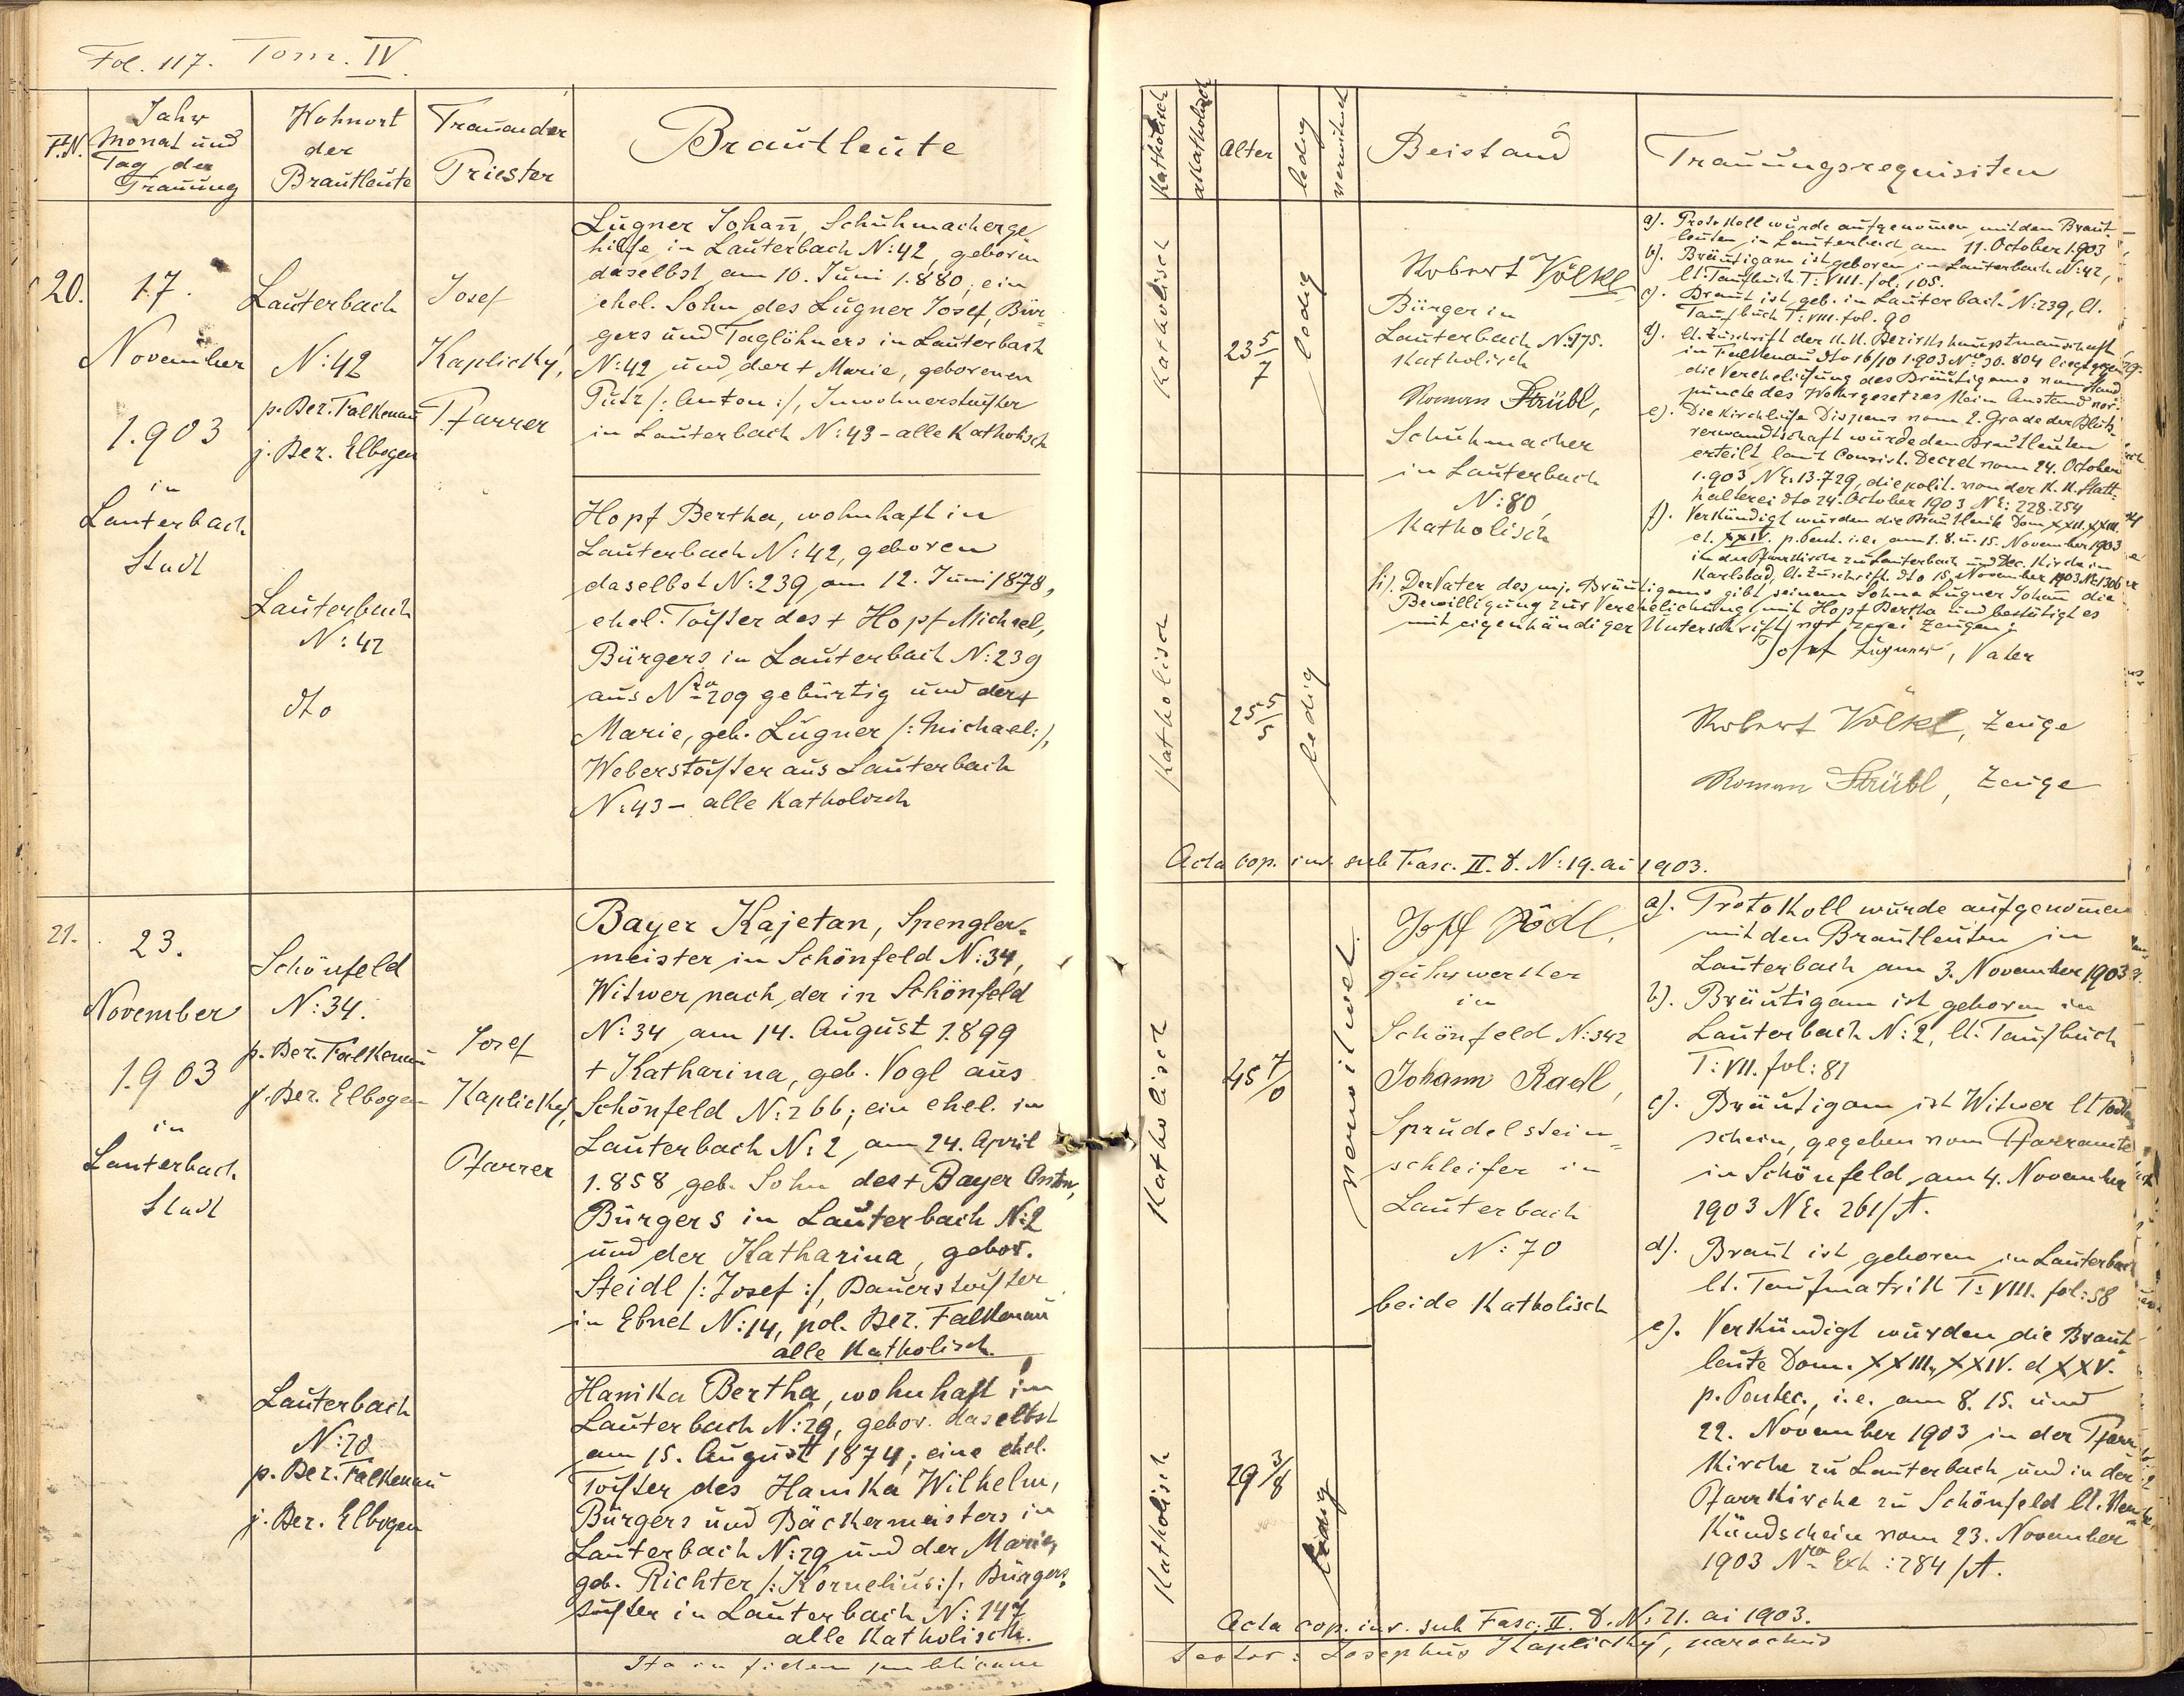 Fol. 117. Tom. IV.
F.N.
Jahr
Monat und
Tag der
Trauung
Wohnort
der
Brautleute
Trauender
Priester
Brautleute
20.
17.
November
1.903
in
Lauterbach
Stadt
Lauterbach
N: 42
p. Bez. Falkenau
j. Bez. Elbogen
Lauterbach
N: 42
dto
Josef
Kaplický,
Pfarrer
Lugner Johan̄, Schuhmacherge
hilfe in Lauterbach N: 42, geboren
daselbst am 10. Juni 1.880; ein
ehel. Sohn des Lugner Josef, Bür-
gers und Taglöhners in Lauterbach
N: 42 und der + Marie, geborenen
Putz /: Anton :/, Inwohnerstochter
in Lauterbach N: 43 - alle katholisch
Hopf Bertha, wohnhaft in
Lauterbach N: 42, geboren
daselbst N: 239 am 12. Juni 1878,
ehel. Tochter des + Hopf Michael,
Bürgers in Lauterbach N: 239
aus Nro 209 gebürtig und der +
Marie, geb. Lugner /: Michael :/,
Weberstochter aus Lauterbach
N: 43 - alle katholisch
21.
23.
November
1.903
in
Lauterbach
Stadt
Schönfeld
N: 34.
p. Bez. Falkenau
j. Bez. Elbogen
Lauterbach
p. Bez. Falkenau
j. Bez. Elbogen
Josef
Kaplický,
Pfarrer
Bayer Kajetan, Spengler-
meister in Schönfeld N: 34,
Witwer nach der in Schönfeld
N: 34 am 14. August 1.899
+ Katharina, geb. Vogl aus
Schönfeld N: 266; ein ehel. in
Lauterbach N: 2 am 24. April
1.858 geb. Sohn des + Bayer Anton,
Bürgers in Lauterbach N: 2
und der Katharina, gebor.
Steidl /: Josef :/, Bauerstochter
in Ebnet N: 14, pol. Bez. Falkenau
alle katholisch.
Hanika Bertha, wohnhaft in
Lauterbach N: 29, gebor. daselbst
am 15. August 1874; eine ehel.
Tochter des Hanika Wilhelm,
Bürgers und Bäckermeisters in
Lauterbach N: 29 und der Marie,
geb. Richter /: Kornelius :/, Bürgers-
tochter in Lauterbach N: 147
alle katholisch.
Ita in fidem publicam
katholisch
akatholisch
Alter
ledig
verwitwet
Beistand
Trauungsrequisiten
katholisch
23 5/7
ledig
Robert Völkl
Bürger in
Lauterbach N: 175.
katholisch
Roman Strübl,
Schuhmacher
in Lauterbach
N: 80,
katholisch
a). Protokoll wurde aufgenom̄en mit den Braut-
leuten in Lauterbach am 11. October 1.903
b). Bräutigam ist geboren in Lauterbach N: 42,
lt. Taufbuch T: VIII. fol: 105.
c). Braut ist geb. in Lauterbach N: 239, lt.
Taufbuch T: VIII. fol. 90
d). lt. Zuschrift der k.k. Bezirkshauptman̄schaft
in Falkenau dto 16/10 1.903 Nro 30.804 liegt gegen
die Verehelichung des Bräutigams vom Stand-
puncte des Wehrgesetzes kein Anstand vor.
e). Die kirchliche Dispens vom 2. Grade der Bluts-
verwandtschaft wurde den Brautleuten
erteilt laut Consist. Decret vom 24. October
1.903 NE. 13.729, die polit. von der k.k. Statt-
halterei dto 24. October 1903 NE: 228.254
f). Verkündigt wurden die Brautleute Dom. XXII. XXIII.
et. XXIV. p. Pent. i.e. am 1. 8. u. 15. November 1903
in der Pfarrkirche zu Lauterbach und Dec. Kirche in
Karlsbad, lt. Zuschrift dto 15. November 1903
Der Vater des mj. Bräutigams gibt seinem Sohne Lugner Johan̄ die
Bewilligung zur Verehelichung mit Hopf Bertha und bestätigt es
mit eigenhändiger Unterschrift vor zwei Zeugen:
Josef Lugner, Vater
Robert Völkl, Zeuge
Roman Strübl, Zeuge
katholisch
25 5/5
ledig
Acta cop. inv. sub Fasc. II. d. N: 19. ai 1903.
katholisch
45 7/0
verwitwet.
Josef Rödl,
Fuhrwerker
in
Schönfeld N: 342
Johann Radl,
Sprudelstein-
schleifer in
Lauterbach
N: 70
beide katholisch
a). Protokoll wurde aufgenom̄en
mit den Brautleuten in
Lauterbach am 3. November 1903
b). Bräutigam ist geboren in
Lauterbach N: 2, lt. Taufbuch
T: VII. fol: 81
c). Bräutigam ist Witwer lt Toten-
schein, gegeben vom Pfarramte
in Schönfeld, am 4. November
1903 NE. 261/A.
d). Braut ist geboren in Lauterbach
lt. Taufmatrik T: VIII. fol: 58
e). Verkündigt wurden die Braut-
leute Dom. XXIII, XXIV. et XXV.
p. Pentec., i.e. am 8. 15. und
22. November 1903 in der Pfarr-
kirche zu Lauterbach und in der
Pfarrkirche zu Schönfeld lt. Ver-
kündschein vom 23. November
1903 Nro Exh: 284/A.
katholisch
29 3/8
ledig
Acta cop. inv. sub Fasc. II. d. N: 21. ai 1903.
Testor: Josephus Kaplický, parochus